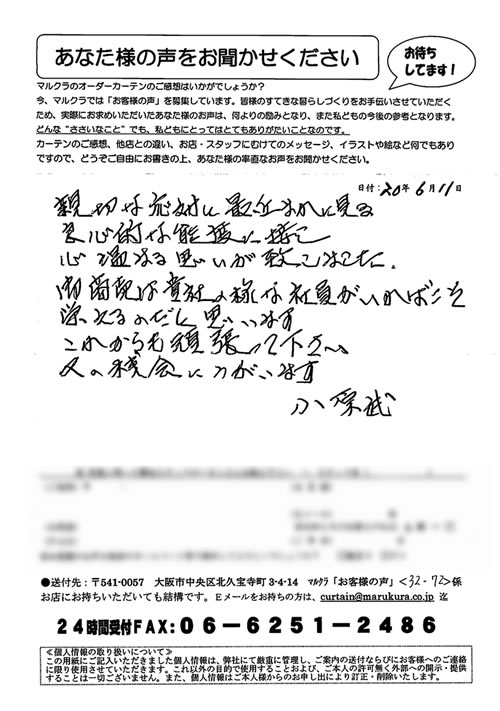 あなた様の声をお聞かせください
お待ち
してます!
マルクラのオーダーカーテンのご感想はいかがでしょうか?
今、マルクラでは「お客様の声」を募集しています。皆様のすてきな暮らしづくりをお手伝いさせていただく
ため、実際にお求めいただいたあなた様のお声は、何よりの励みとなり、また私どもの今後の参考となります。
どんな"ささいなこと"でも、私どもにとってはとてもありがたいことなのです。
カーテンのご感想、他店との違い、お店・スタッフにむけてのメッセージ、イラストや絵など何でもあり
ですので、どうぞご自由にお書きの上、あなた様の率直なお声をお聞かせください。
日付:20年6月11日
親切な応対に最近まれに見る
良心的な態度に接し
心温まる思いが致しました。
御商売は貴社の様な社員がいればこそ
栄えるのだと思います
これからも頑張って下さい
又の機会にねがいます
●送付先:〒541-0057 大阪市中央区北久宝寺町3-4-14 マルクラ「お客様の声」<32-72>係
お店にお持ちいただいても結構です。Eメールをお持ちの方は、curtain@marukura.co.jp 迄
24時間受付FAX:06-6251-2486
≪個人情報の取り扱いについて≫
この用紙にご記入いただきました個人情報は、弊社にて厳重に管理し、ご案内の送付ならびにお客様へのご連絡
に限り使用させていただきます。これ以外の目的で使用することおよび、ご本人の許可無く外部への開示・提供
することは一切ございません。また、個人情報はご本人様からのお申し出により訂正・削除いたします。